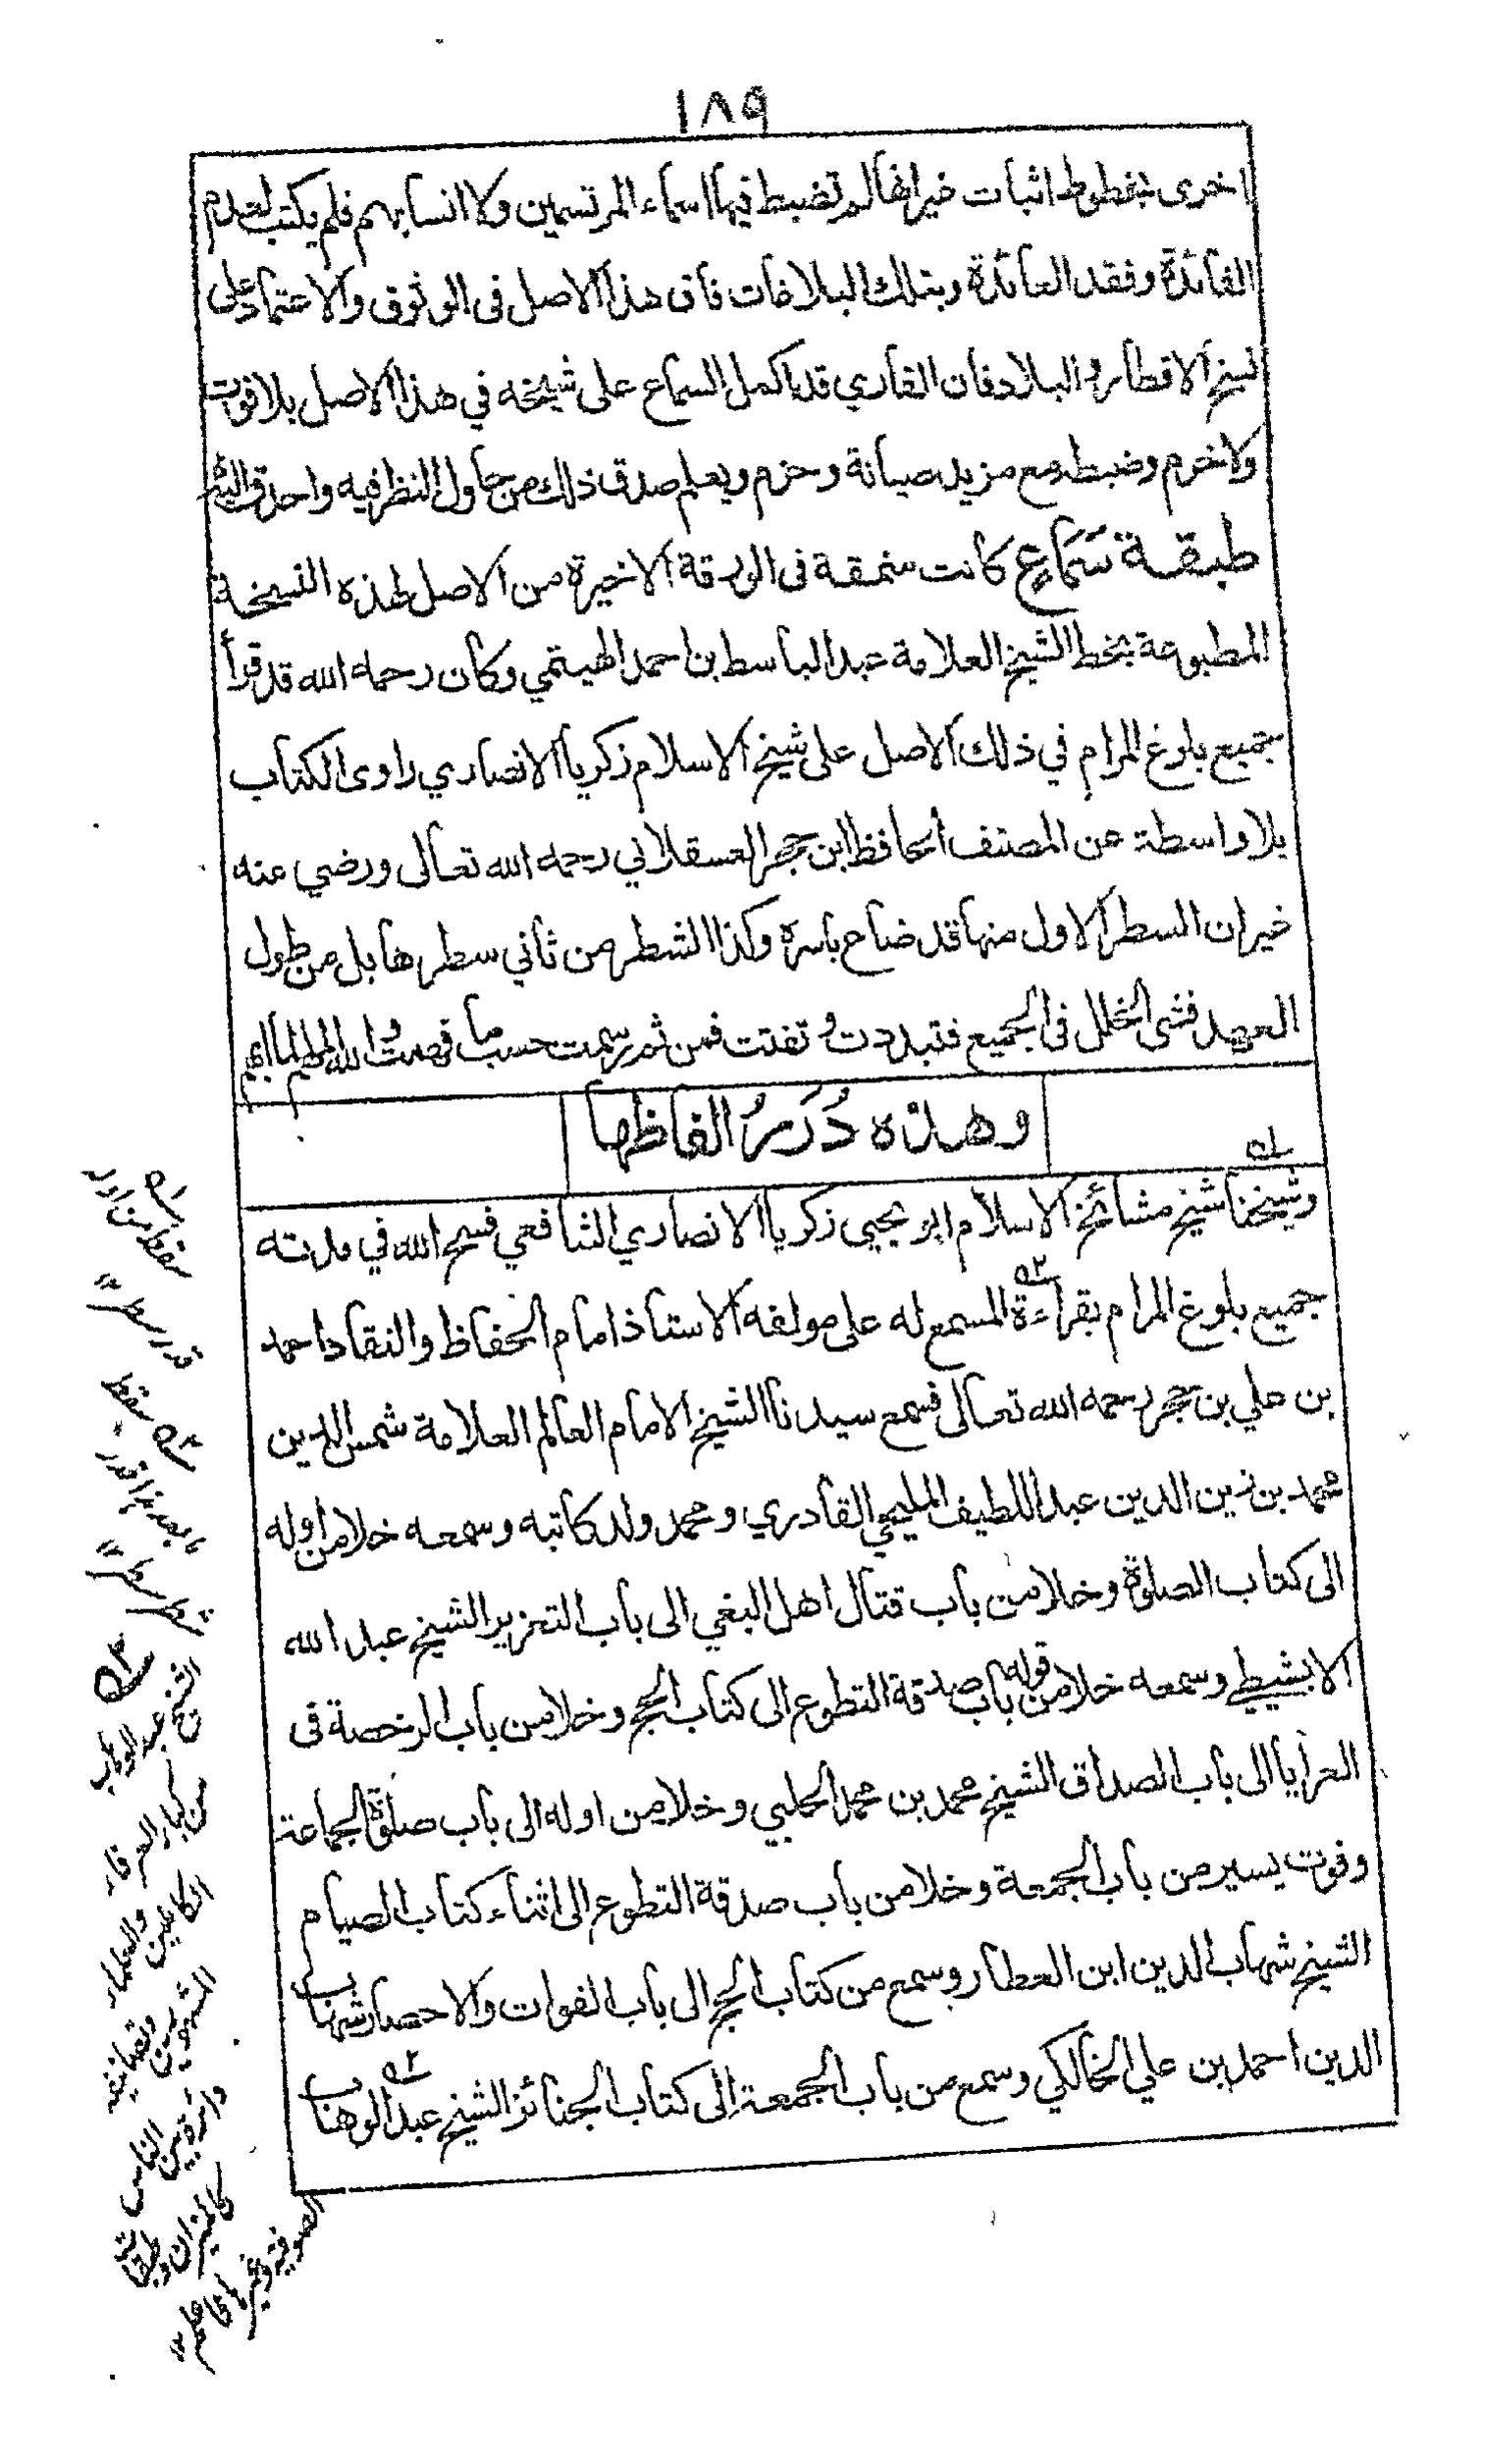 ١٨٩
اخرى بخطوط اثبات غير انها لم تضبط فيها اسماء المرتسمين ولا انسابهم فلم يكتب لعدم
الفائدة وفقد العائدة وبتلك البلاغات فاق هذا الاصل فى الوثوق والاعتماد على
نسخ الاقطار والبلاد فان القاري قد اكمل السماع على شيخه في هذا الاصل بلا فوت
ولا خرم وضبط مع مزيد صيانة وحزم ويعلم صدق ذلك من حاول النظر فيه واحدق
طبقة سَمَاعٍ كانت منمقة فى الورقة الاخيرة من الاصل لهذه النسخة
المطبوعة بخط الشيخ العلامة عبد الباسط بن احمد الهيتمي وكان رحمه الله قد قرأ
جميع بلوغ المرام في ذلك الاصل على شيخ الاسلام زكريا الانصاري راوى الكتاب
بلا واسطة عن المصنف الحافظ ابن حجر العسقلاني رحمه الله تعالى ورضي عنه
غير ان السطر الاول منها قد ضاع باسره وكذا الشطر من ثاني سطرها بل من طول
العهد فشى الخلل فى الجميع فتبددت وتفتت فمن ثم رسمت حسب ما فهمت والله الملهم
وهذه دُرَرُ الفاظها
وشيخنا شيخ مشائخ الاسلام ابو يحيى زكريا الانصاري الشافعي فسح الله في مدته
جميع بلوغ المرام بقراءة المسمع له على مولفه الاستاذ امام الحفاظ والنقاد احمد
بن علي بن حجر رحمه الله تعالى فسمع سيدنا الشيخ الامام العالم العلامة شمس الدين
محمد بن زين الدين عبد اللطيف المليجي القادري ومحمد ولد كاتبه وسمعه خلا من اوله
الى كتاب الصلوة وخلا من باب قتال اهل البغي الى باب التعزير الشيخ عبد الله
الابشيطي وسمعه خلا من قوله باب صدقة التطوع الى كتاب الحج وخلا من باب الرخصة فى
العرايا الى باب الصداق الشيخ محمد بن محمد الحلبي وخلا من اوله الى باب صلوة الجماعة
وفوت يسير من باب الجمعة وخلا من باب صدقة التطوع الى اثناء كتاب الصيام
الشيخ شهاب الدين ابن العطار وسمع من كتاب الحج الى باب الفوات والاحصار شهاب
الدين احمد بن علي الخالكي وسمع من باب الجمعة الى كتاب الجنائز الشيخ عبد الوهاب
سقط من اوله
قدر سطر ١٢
سقط
بعد هذا قدر
شطر سطر ١٢
الشيخ عبد الوهاب
من كبار العرفاء
الكاملين والعلماء
وتصانيفه
كالميزان وطبقات
الصوفية وغيرها